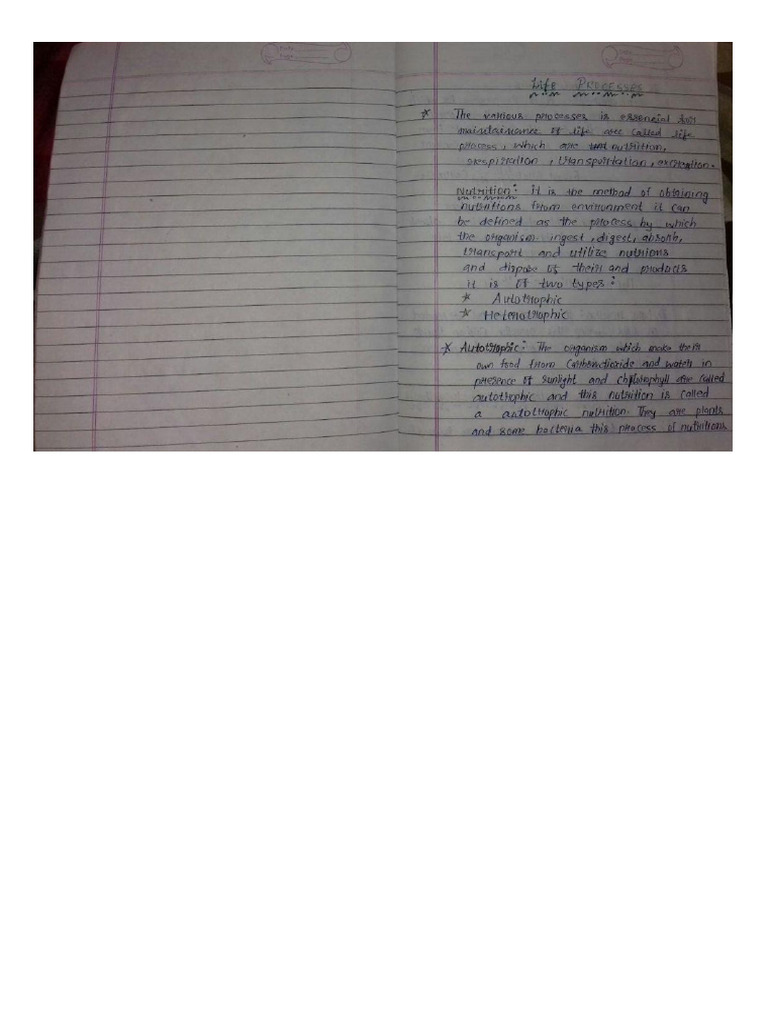 Life Processes
* The various processes is essencial for
maintainance of life are called life
process, which are nutrition,
respiration, transportation, excreation.
Nutrition: it is the method of obtaining
nutritions from environment it can
be defined as the process by which
the organism ingest, digest, absorb,
transport and utilize nutrions
and dispose of their and products
it is of two types:
* Autotrophic
* Heterotrophic
* Autotrophic: The organism which make their
own food from Carbondioxide and water in
presence of sunlight and chlorophyll are called
autotrophic and this nutrition is called
a autotrophic nutrition. They are plants
and some bacteria this process of nutritions